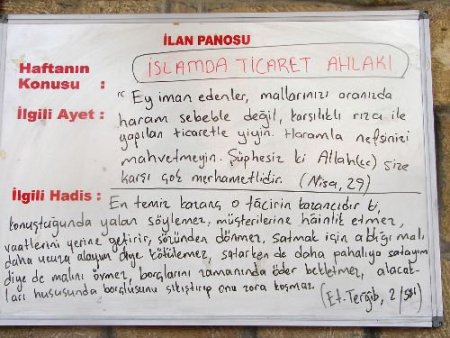 İLAN PANOSU
Haftanın Konusu : İSLAMDA TİCARET AHLAKI
İlgili Ayet : "Ey iman edenler, mallarınızı aranızda
haram sebeble değil, karşılıklı rıza ile
yapılan ticaretle yiyin. Haramla nefsinizi
mahvetmeyin. Şüphesiz ki Allah(cc) size
karşı çok merhametlidir. (Nisa, 29)
İlgili Hadis : En temiz kazanç o tâcirin kazancıdır ki,
konuştuğunda yalan söylemez, müşterilerine hâinlik etmez,
vaatlerini yerine getirir, sözünden dönmez, satmak için aldığı malı
daha ucuza alayım diye kötülemez, satarken de daha pahalıya satayım
diye de malını övmez, borçlarını zamanında öder bekletmez, alacak-
ları hususunda borçlusunu sıkıştırıp onu zora koşmaz.
(Et-Terğib, 2/